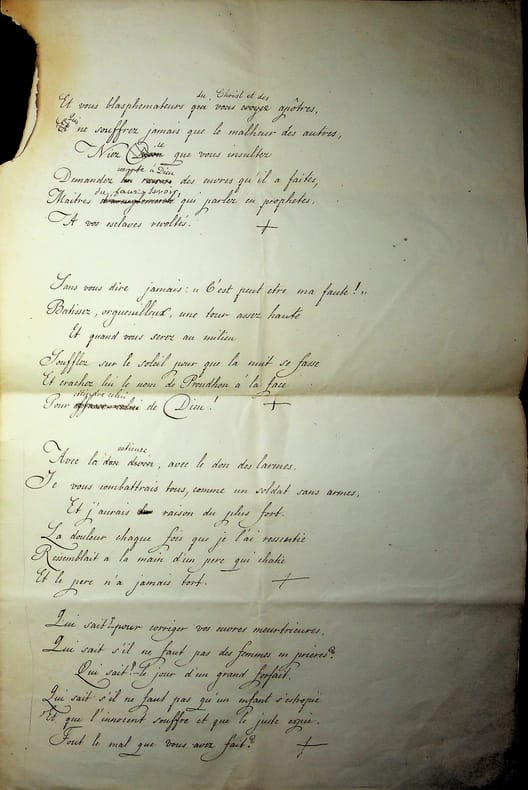 du Christ et des
Et vous blasphemateurs qui vous croyez apôtres,
Qui
ne souffrez jamais que le malheur des autres,
ce
Niez que vous insultez
compte à Dieu
Demandez des euvres qu'il a faites,
du faux savoir,
Maitres qui parlez en prophetes,
A vos esclaves revoltés.
Sans vous dire jamais: "C'est peut etre ma faute!"
Batissez, orgueuilleux, une tour assez haute
Et quand vous serez au milieu
Soufflez sur le soleil pour que la nuit se fasse
Et crachez lui le nom de Proudhon à la face
Pour de Dieu!
patience
Avec la divon, avec le don des larmes.
Je vous combattrais tous, comme un soldat sans armes,
Et j'aurais raison du plus fort.
La douleur chaque fois que je l'ai ressentie
Ressemblait a la main d'un pere qui chatie
Et le pere n'a jamais tort.
Qui sait? pour corriger vos euvres meurtrieures,
Qui sait s'il ne faut pas des femmes en prieres?
Qui sait? le jour d'un grand forfait.
Qui sait s'il ne faut pas qu'un enfant s'estropie
Et que l'innocent souffre et que le juste expie.
Tout le mal que vous avez fait?